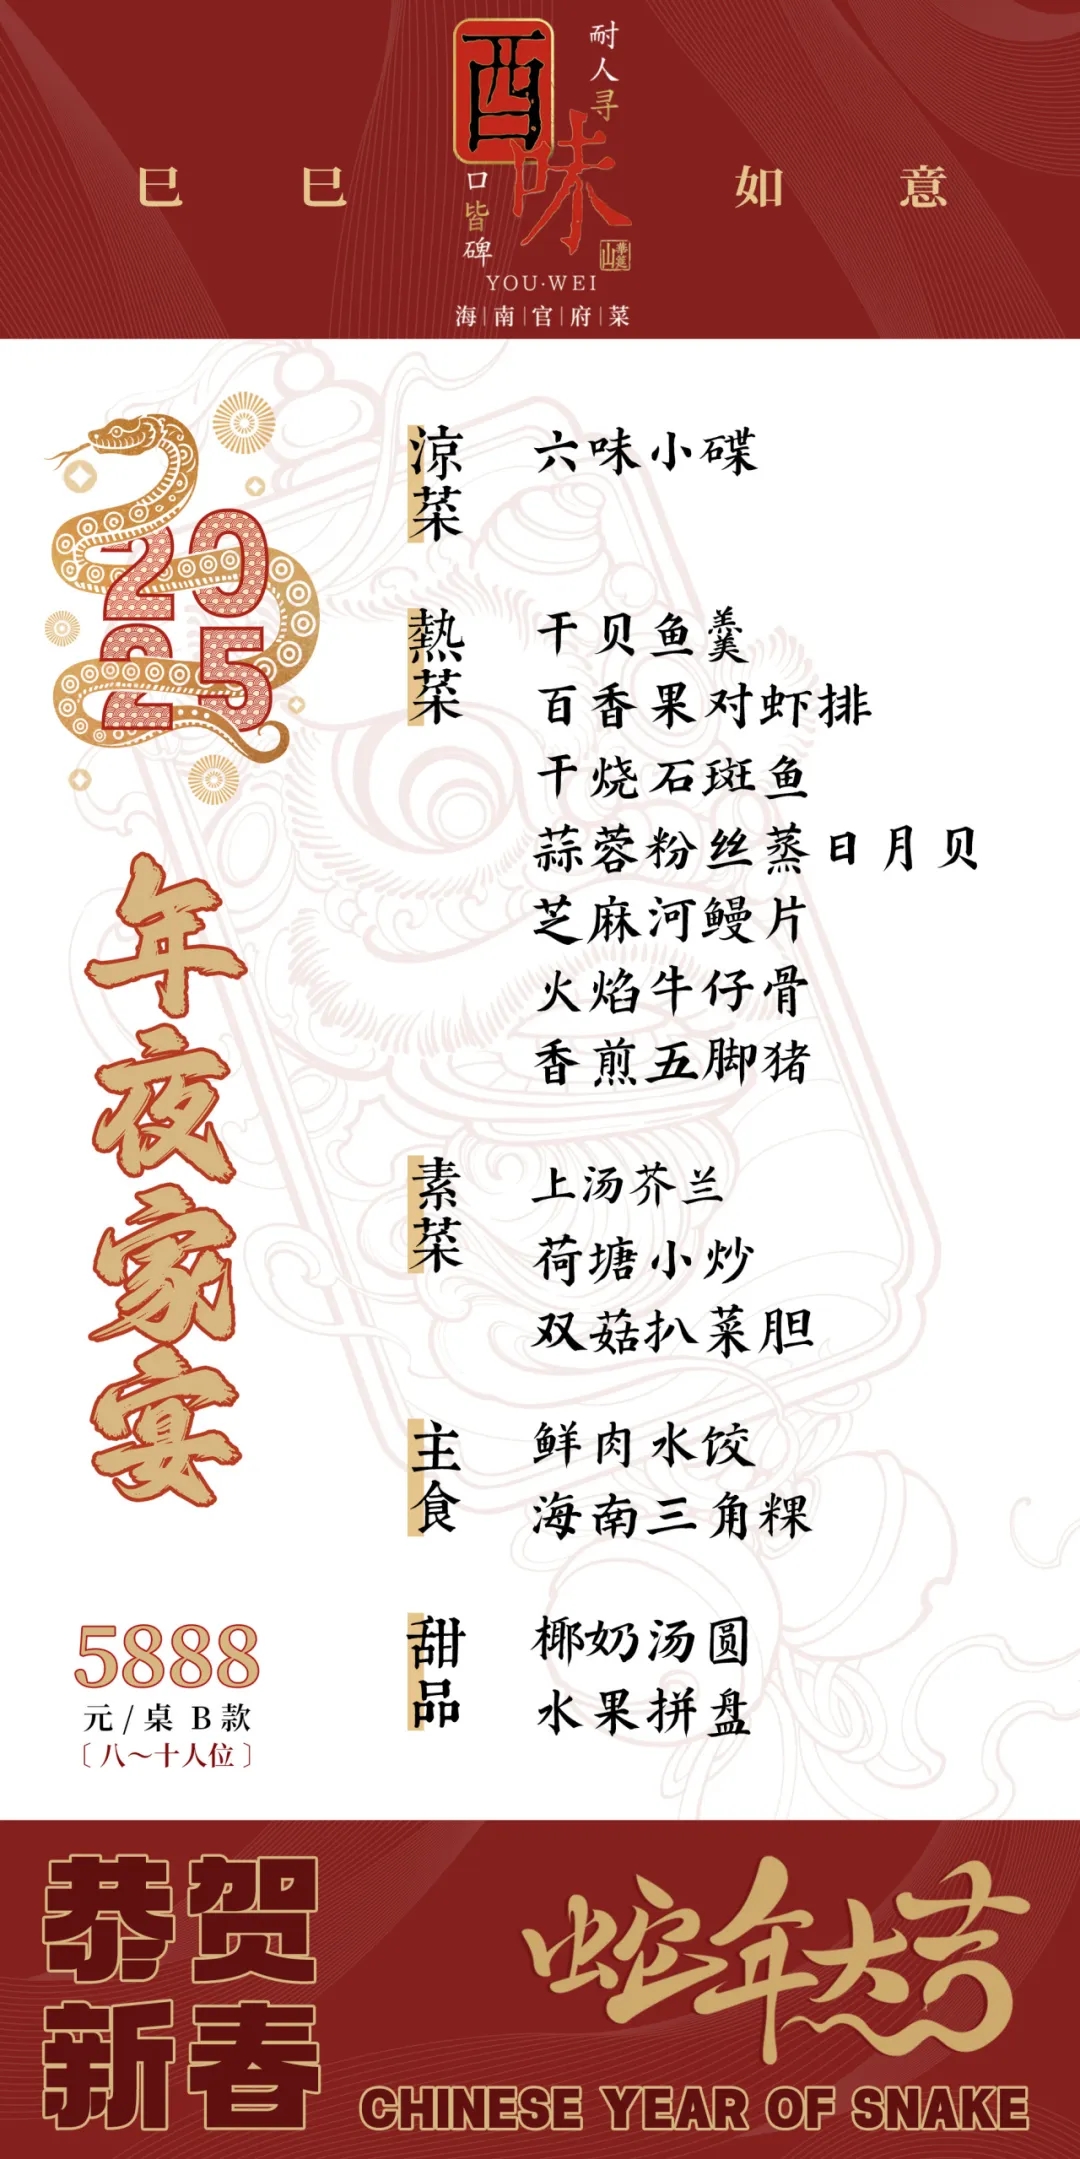 耐人寻
酉味
口皆碑
華莚山
YOU·WEI
海|南|官|府|菜
巳巳如意
2025
年夜家宴
5888
元/桌 B款
〔八～十人位〕
涼菜
六味小碟
熱菜
干贝鱼羹
百香果对虾排
干烧石斑鱼
蒜蓉粉丝蒸日月贝
芝麻河鳗片
火焰牛仔骨
香煎五脚猪
素菜
上汤芥兰
荷塘小炒
双菇扒菜胆
主食
鲜肉水饺
海南三角粿
甜品
椰奶汤圆
水果拼盘
恭贺
新春
蛇年大吉
CHINESE YEAR OF SNAKE